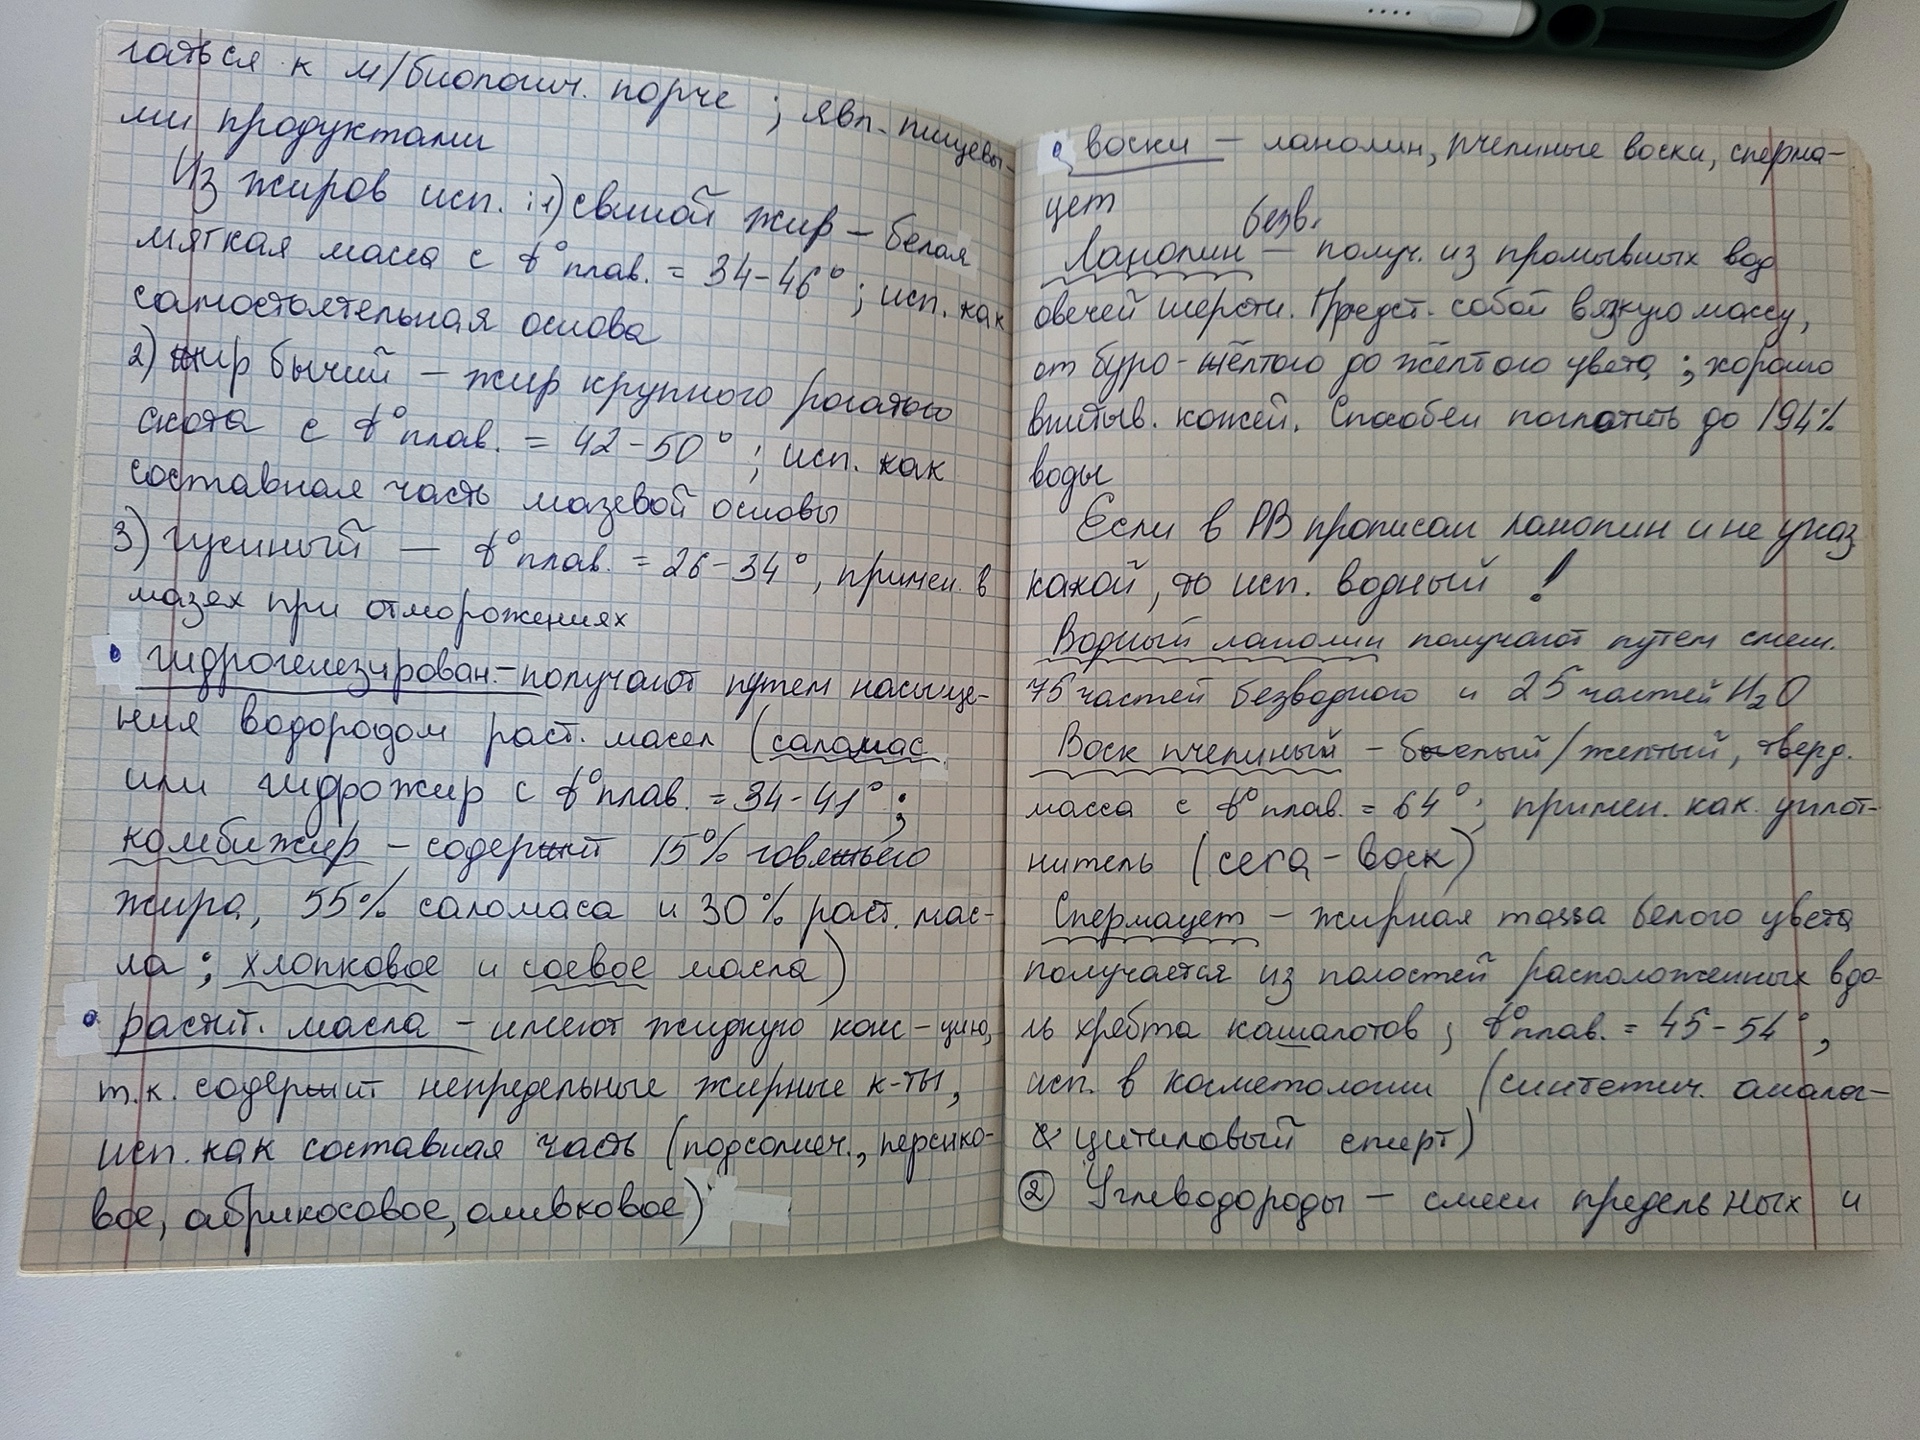 гаться к м/биологич. порче ; явл. пищевы-
ми продуктами
Из жиров исп. : 1) свиной жир – белая
мягкая масса с t° плав. = 34-46° ; исп. как
самостоятельная основа
2) жир бычий – жир крупного рогатого
скота с t° плав. = 42-50° ; исп. как
составная часть мазевой основы
3) гусиный – t° плав. = 26-34°, примен. в
мазях при отморожениях
• гидрогенезирован. – получают путем насыще-
ния водородом раст. масел (саломас
или гидрожир с t° плав. = 34-41° ;
комбижир – содержит 15% говяжьего
жира, 55% саломаса и 30% раст. мас-
ла ; хлопковое и соевое масла)
• растит. масла – имеют жидкую кон-цию,
т.к. содержит непредельные жирные к-ты,
исп. как составная часть (подсолнеч., персико-
вое, абрикосовое, оливковое)
• воски – ланолин, пчелиные воски, сперма-
цет
безв.
Ланолин – получ. из промывных вод
овечей шерсти. Предст. собой вязкую массу,
от буро-жёлтого до жёлтого цвета ; хорошо
впитыв. кожей. Способен поглотить до 194%
воды
Если в РВ прописан ланолин и не указ.
какой, то исп. водный !
Водный ланолин получают путем смеш.
75 частей безводного и 25 частей H₂O
Воск пчелиный – белый/желтый, тверд.
масса с t° плав. = 64° ; примен. как уплот-
нитель (cera-воск)
Спермацет – жирная massa белого цвета
получается из полостей расположенных вдо-
ль хребта кашалотов ; t° плав. = 45-54°,
исп. в косметологии (синтетич. аналог-
цитиловый спирт)
② Углеводороды – смеси предельных и